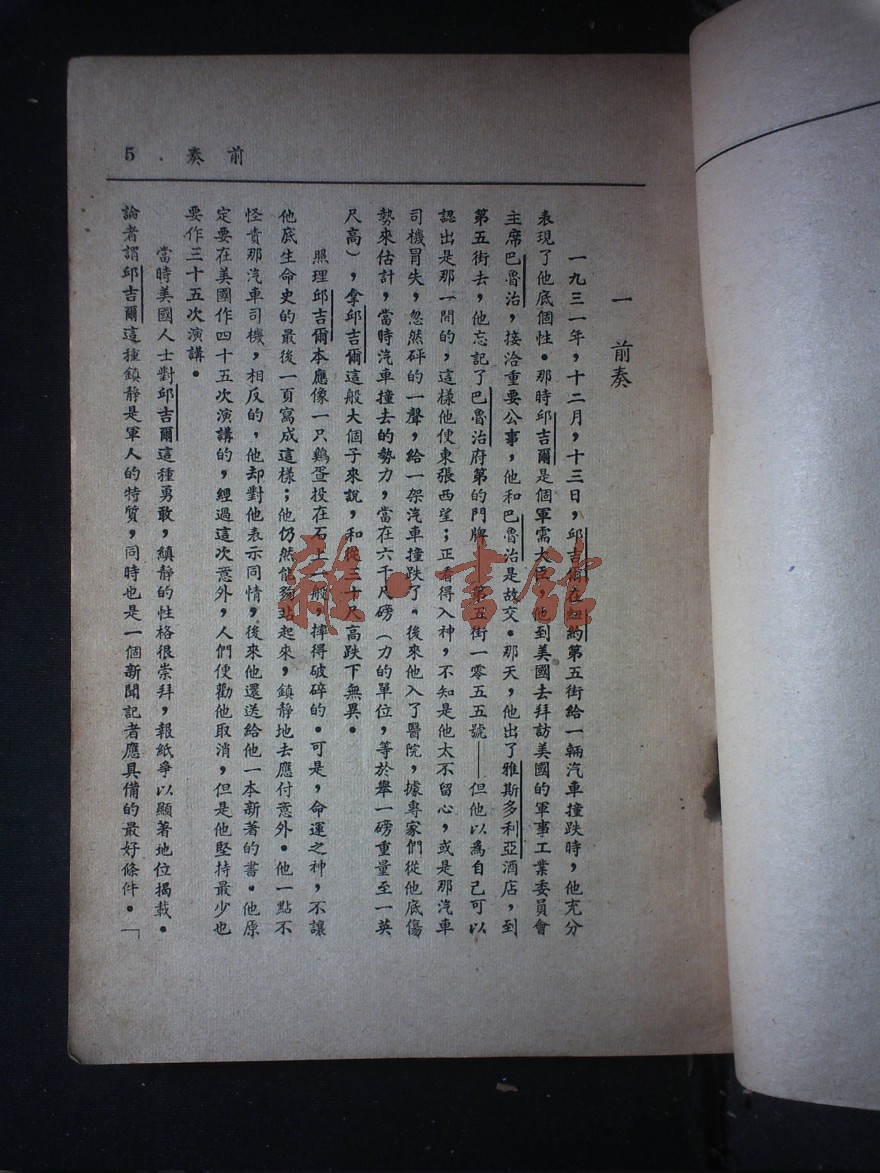 前奏 . 5
一 前奏
一九三一年，十二月，十三日，邱吉爾在紐約第五街給一輛汽車撞跌時，他充分
表現了他底個性。那時邱吉爾是個軍需大臣，他到美國去拜訪美國的軍事工業委員會
主席巴魯治，接洽重要公事，他和巴魯治是故交。那天，他出了雅斯多利亞酒店，到
第五街去，他忘記了巴魯治府第的門牌，第五街一零五五號——但他以為自己可以
認出是那一間的，這樣他便東張西望；正看得入神，不知是他太不留心，或是那汽車
司機冒失，忽然砰的一聲，給一架汽車撞跌了。後來他入了醫院，據專家們從他底傷
勢來估計，當時汽車撞去的勢力，當在六千尺磅（力的單位，等於舉一磅重量至一英
尺高），拿邱吉爾這般大個子來說，和從三十尺高跌下無異。
照理邱吉爾本應像一只鷄蛋投在石上一般，摔得破碎的。可是，命運之神，不讓
他底生命史的最後一頁寫成這樣；他仍然能夠站起來，鎮静地去應付意外。他一點不
怪責那汽車司機，相反的，他却對他表示同情，後來他還送給他一本新著的書。他原
定要在美國作四十五次演講的，經過這次意外，人們便勸他取消，但是他堅持最少也
要作三十五次演講。
當時美國人士對邱吉爾這種勇敢，縝静的性格很崇拜，報紙爭以顯著地位揭載。
論者謂邱吉爾這種鎮静是軍人的特質，同時也是一個新聞記者應具備的最好條件。「
雜·書館